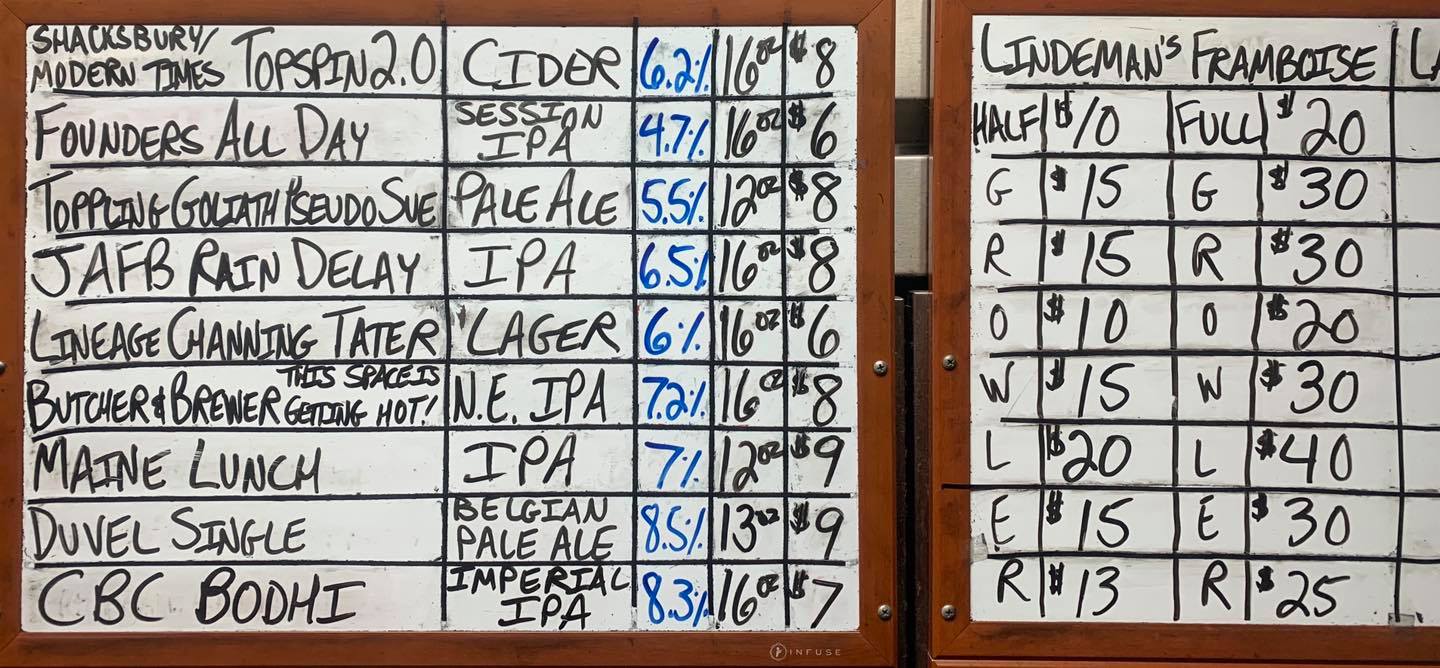 SHACKSBURY/
MODERN TIMES TOPSPIN 2.0 CIDER 6.2% 16oz $8
FOUNDERS ALL DAY SESSION IPA 4.7% 16oz $6
TOPPLING GOLIATH PSEUDO SUE PALE ALE 5.5% 12oz $8
JAFB RAIN DELAY IPA 6.5% 16oz $8
LINEAGE CHANNING TATER LAGER 6% 16oz $6
BUTCHER & BREWER THIS SPACE IS GETTING HOT! N.E. IPA 7.2% 16oz $8
MAINE LUNCH IPA 7% 12oz $9
DUVEL SINGLE BELGIAN PALE ALE 8.5% 13oz $9
CBC BODHI IMPERIAL IPA 8.3% 16oz $7
INFUSE
LINDEMAN'S FRAMBOISE LA
HALF $10 FULL $20
G $15 G $30
R $15 R $30
O $10 O $20
W $15 W $30
L $20 L $40
E $15 E $30
R $13 R $25